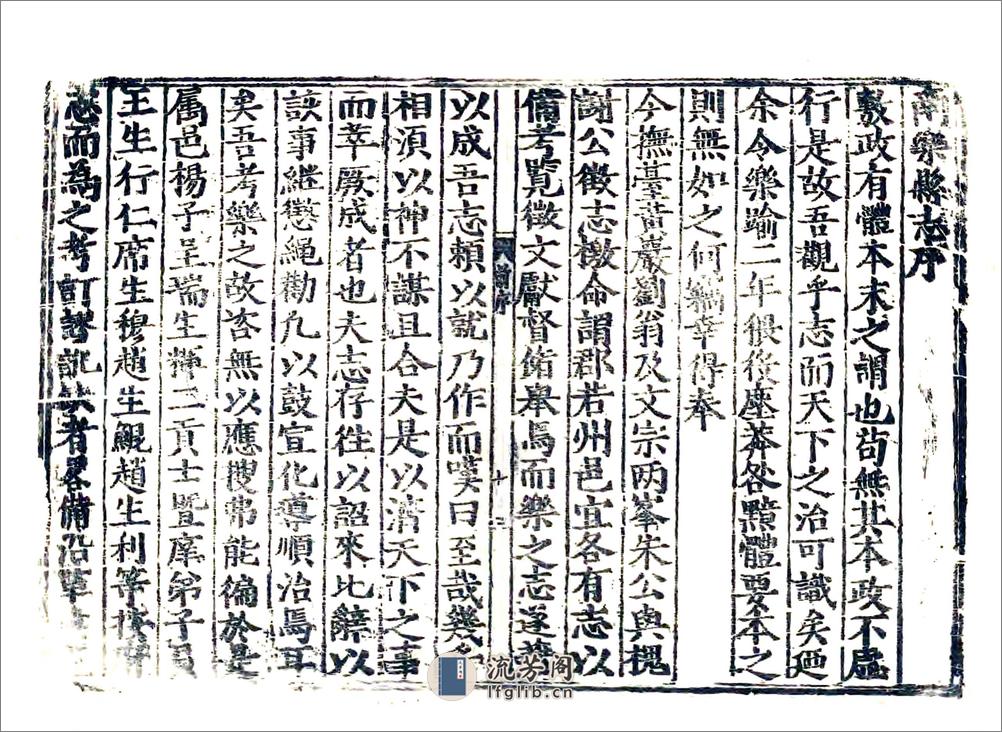 南樂縣志序
敷政有體本末之謂也茍無其本政不虛
行是故吾觀乎志而天下之治可識矣廼
余令樂踰二年猥役座莽咎黯體要本之
則無如之何竊幸得奉
今撫臺黃巖劉翁及文宗两峯朱公與槐
公徵志檄命謂郡若州邑宜各有志以
備考覽徵文獻督侑舉焉而樂之志遂
以成吾志頼以就乃作而嘆曰至哉幾
相須以神不謀且合夫是以濟天下之事
而幸厥成者也夫志存徃以詔來比辭以
該事継懲䋲勸凢以鼓宣化導順治焉耳
矣吾考樂之故咨無以應搜弗能徧於是
属邑楊子呈瑞生二貢士暨庠弟子員
王生行仁席生穆趙生鯤趙生利等按
志而為之考訂謬訛缺者畧備沿革
六 前序
十三
流芳阁
lfglib.cn